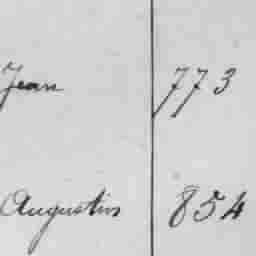 Jean 773
Augustin 854